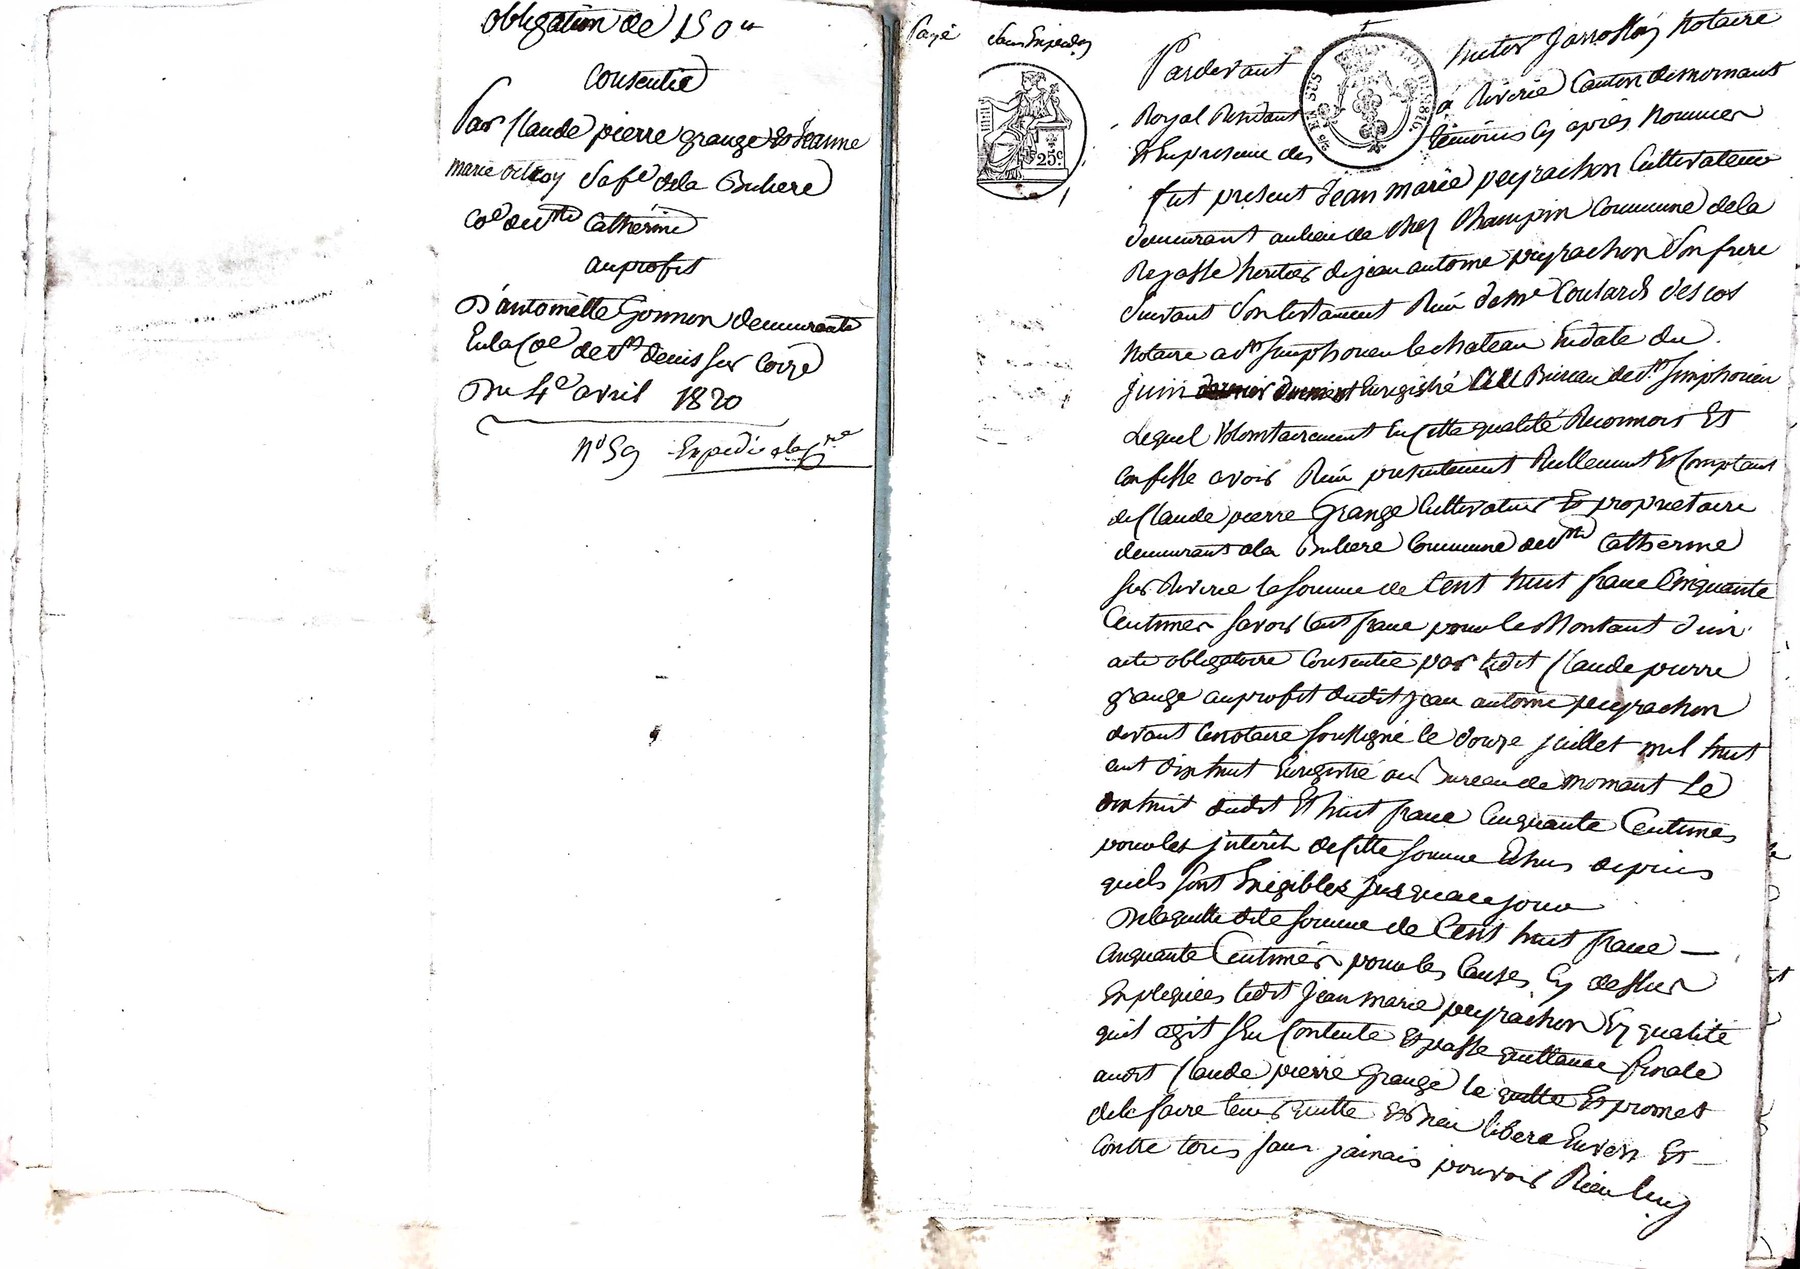 obligation de 150 #
Consentie
Par Claude pierre grange et Jeanne
marie sa fe de la Buliere
Coe de Ste Catherine
au profit
D'antoinette Gonnon demeurante
En la Coe de St denis sur Coize
Du 4e avril 1820
No 59 Expédié
Payé
Pardevant huter Jarrosson Notaire
Royal Residant à Riverie Canton de mornant
Et En presence des témoins Cy après Nommés
fut present Jean marie peyrachon Cultivateur
demeurant au lieu de chez Champin Commune de la
Rajasse heritier de jean antoine peyrachon Son frere
Suivant Son testament Reçu de Me Coulard descos
Notaire a St Simphorien le chateau En date du
juin dernier duement Enregistré au Bureau de St Simphorien
Lequel Volontairement En Cette qualité Reconnois Et
Confesse avoir Reçu presentement Reellement Et Comptant
de Claude pierre Grange Cultivateur Et proprietaire
demeurant a la Buliere Commune de Ste Catherine
sur Riverie la somme de Cent huit franc Cinquante
Centimes Savoir Cent franc pour le Montant d'un
acte obligatoire Consentie par ledit Claude pierre
grange au profit dudit jean antoine peyrachon
devant le notaire soussigné le douze juillet mil huit
cent dix huit Enregistré au Bureau de mornant Le
dix huit dudit Et huit franc Cinquante Centimes
pour les jnterêts de Cette somme Echus depuis
quils sont Exigibles jusqua ce jour
De laquelle dite somme de Cent huit franc —
Cinquante Centimes pour les Causes Cy dessus
Expliquées ledit Jean marie peyrachon En qualité
quil agit s'en Contente Et passe quittance finale
audit Claude pierre Grange le quitte Et promet
de le faire tenir quitte Et Bien libere Envers Et —
Contre tous sans jamais pouvoir Rien
EN SUS
25c
1816.